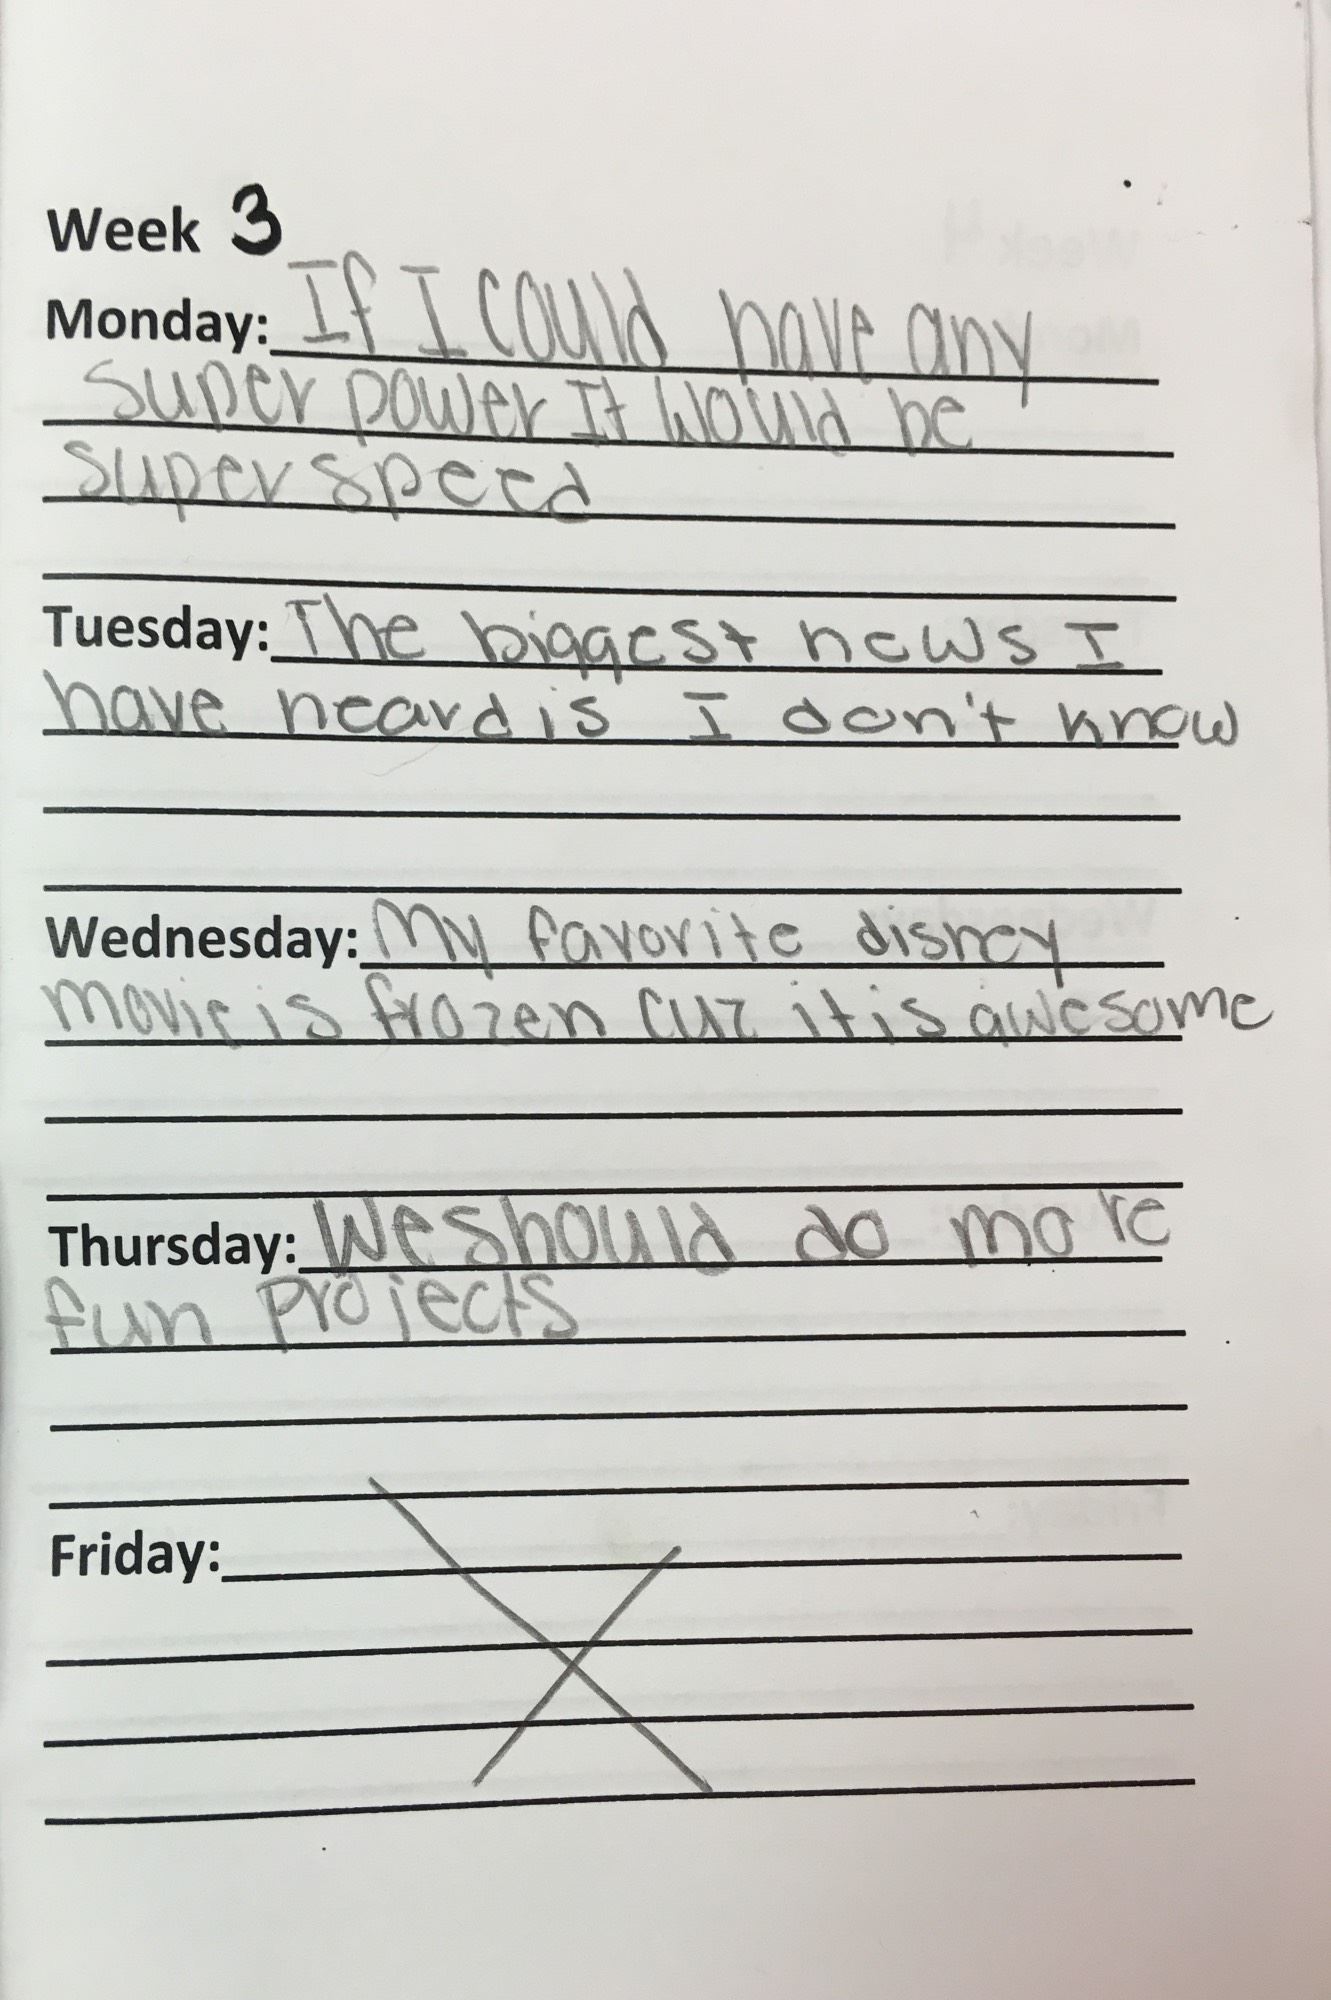 Week 3
Monday: If I could have any
super power It would be
super speed
Tuesday: The biggest news I
have heard is I don't know
Wednesday: My favorite disney
movie is frozen cuz it is awesome
Thursday: We should do more
fun projects
Friday: